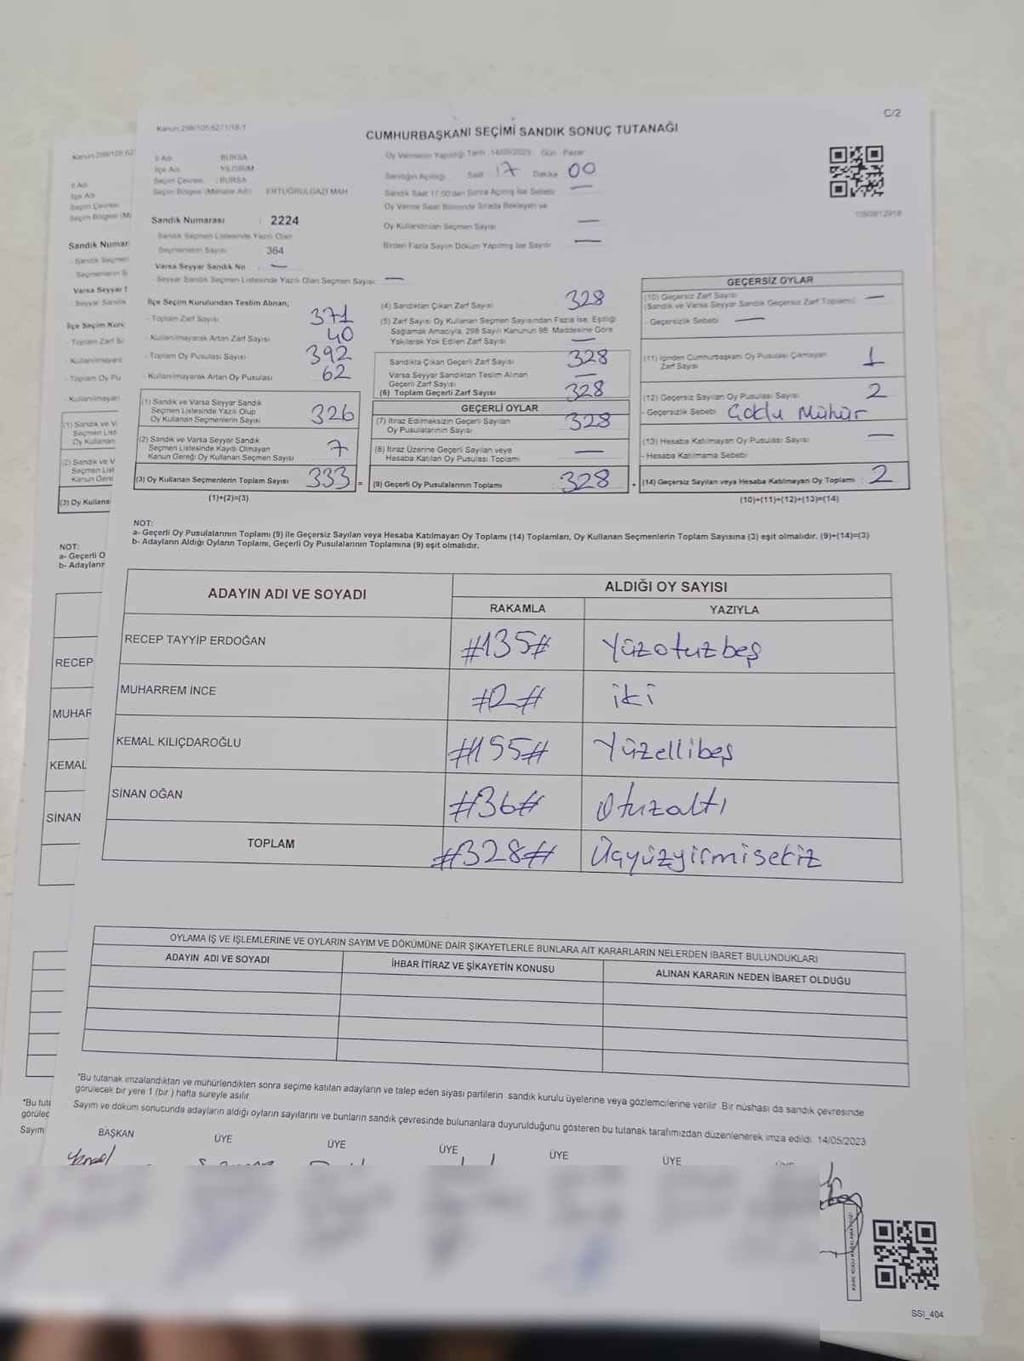 C/2
Kanun:298/105;6271/18/1
CUMHURBAŞKANI SEÇİMİ SANDIK SONUÇ TUTANAĞI
İl Adı : BURSA
İlçe Adı : YILDIRIM
Seçim Çevresi : BURSA
Seçim Bölgesi (Mahalle Adı) : ERTUĞRULGAZİ MAH
Sandık Numarası : 2224
Sandık Seçmen Listesinde Yazılı Olan
Seçmenlerin Sayısı : 364
Varsa Seyyar Sandık No : —
Seyyar Sandık Seçmen Listesinde Yazılı Olan Seçmen Sayısı : —
Oy Vermenin Yapıldığı Tarih : 14/05/2023 Gün : Pazar
Sandığın Açıldığı Saat 17 Dakika 00
Sandık Saat 17:00'dan Sonra Açılmış İse Sebebi —
Oy Verme Saati Bitiminde Sırada Bekleyen ve
Oy Kullandırılan Seçmen Sayısı —
Birden Fazla Sayım Döküm Yapılmış İse Sayısı —
İlçe Seçim Kurulundan Teslim Alınan;
- Toplam Zarf Sayısı 371
- Kullanılmayarak Artan Zarf Sayısı 40
- Toplam Oy Pusulası Sayısı 392
- Kullanılmayarak Artan Oy Pusulası 62
(1) Sandık ve Varsa Seyyar Sandık
Seçmen Listesinde Yazılı Olup
Oy Kullanan Seçmenlerin Sayısı 326
(2) Sandık ve Varsa Seyyar Sandık
Seçmen Listesinde Kayıtlı Olmayan
Kanun Gereği Oy Kullanan Seçmen Sayısı 7
(3) Oy Kullanan Seçmenlerin Toplam Sayısı 333 =
(1)+(2)=(3)
(4) Sandıktan Çıkan Zarf Sayısı 328
(5) Zarf Sayısı Oy Kullanan Seçmen Sayısından Fazla İse, Eşitliği
Sağlamak Amacıyla, 298 Sayılı Kanunun 98. Maddesine Göre
Yakılarak Yok Edilen Zarf Sayısı —
Sandıkta Çıkan Geçerli Zarf Sayısı 328
Varsa Seyyar Sandıktan Teslim Alınan
Geçerli Zarf Sayısı —
(6) Toplam Geçerli Zarf Sayısı 328
GEÇERLİ OYLAR
(7) İtiraz Edilmeksizin Geçerli Sayılan
Oy Pusulalarının Sayısı 328
(8) İtiraz Üzerine Geçerli Sayılan veya
Hesaba Katılan Oy Pusulası Toplamı —
(9) Geçerli Oy Pusulalarının Toplamı 328 +
GEÇERSİZ OYLAR
(10) Geçersiz Zarf Sayısı
(Sandık ve Varsa Seyyar Sandık Geçersiz Zarf Toplamı) —
- Geçersizlik Sebebi —
(11) İçinden Cumhurbaşkanı Oy Pusulası Çıkmayan
Zarf Sayısı 1
(12) Geçersiz Sayılan Oy Pusulası Sayısı 2
- Geçersizlik Sebebi Çoklu Mühür
(13) Hesaba Katılmayan Oy Pusulası Sayısı —
- Hesaba Katılmama Sebebi
(14) Geçersiz Sayılan veya Hesaba Katılmayan Oy Toplamı 2
(10)+(11)+(12)+(13)=(14)
NOT:
a- Geçerli Oy Pusulaları Toplamı (9) ile Geçersiz Sayılan veya Hesaba Katılmayan Oy Toplamı (14) Toplamları, Oy Kullanan Seçmenlerin Toplam Sayısına (3) eşit olmalıdır. (9)+(14)=(3)
b- Adayların Aldığı Oyların Toplamı, Geçerli Oy Pusulalarının Toplamına (9) eşit olmalıdır.
ADAYIN ADI VE SOYADI
ALDIĞI OY SAYISI
RAKAMLA YAZIYLA
RECEP TAYYİP ERDOĞAN #135# Yüzotuzbeş
MUHARREM İNCE #2# iki
KEMAL KILIÇDAROĞLU #155# Yüzellibeş
SİNAN OĞAN #36# Otuzaltı
TOPLAM #328# Üçyüzyirmisekiz
OYLAMA İŞ VE İŞLEMLERİNE VE OYLARIN SAYIM VE DÖKÜMÜNE DAİR ŞİKAYETLERLE BUNLARA AİT KARARLARIN NELERDEN İBARET BULUNDUKLARI
ADAYIN ADI VE SOYADI İHBAR İTİRAZ VE ŞİKAYETİN KONUSU ALINAN KARARIN NEDEN İBARET OLDUĞU
*Bu tutanak imzalandıktan ve mühürlendikten sonra seçime katılan adayların ve talep eden siyasi partilerin sandık kurulu üyelerine veya gözlemcilerine verilir. Bir nüshası da sandık çevresinde
görülecek bir yere 1 (bir ) hafta süreyle asılır.
Sayım ve döküm sonucunda adayların aldığı oyların sayılarını ve bunların sandık çevresinde bulunanlara duyurulduğunu gösteren bu tutanak tarafımızdan düzenlenerek imza edildi. 14/05/2023
BAŞKAN ÜYE ÜYE ÜYE ÜYE ÜYE
SSI_404
Sandık Numar
NOT:
a- Geçerli O
b- Adayların
RECEP
MUHAR
KEMAL
SİNAN
*Bu tuta
görülec
Sayım